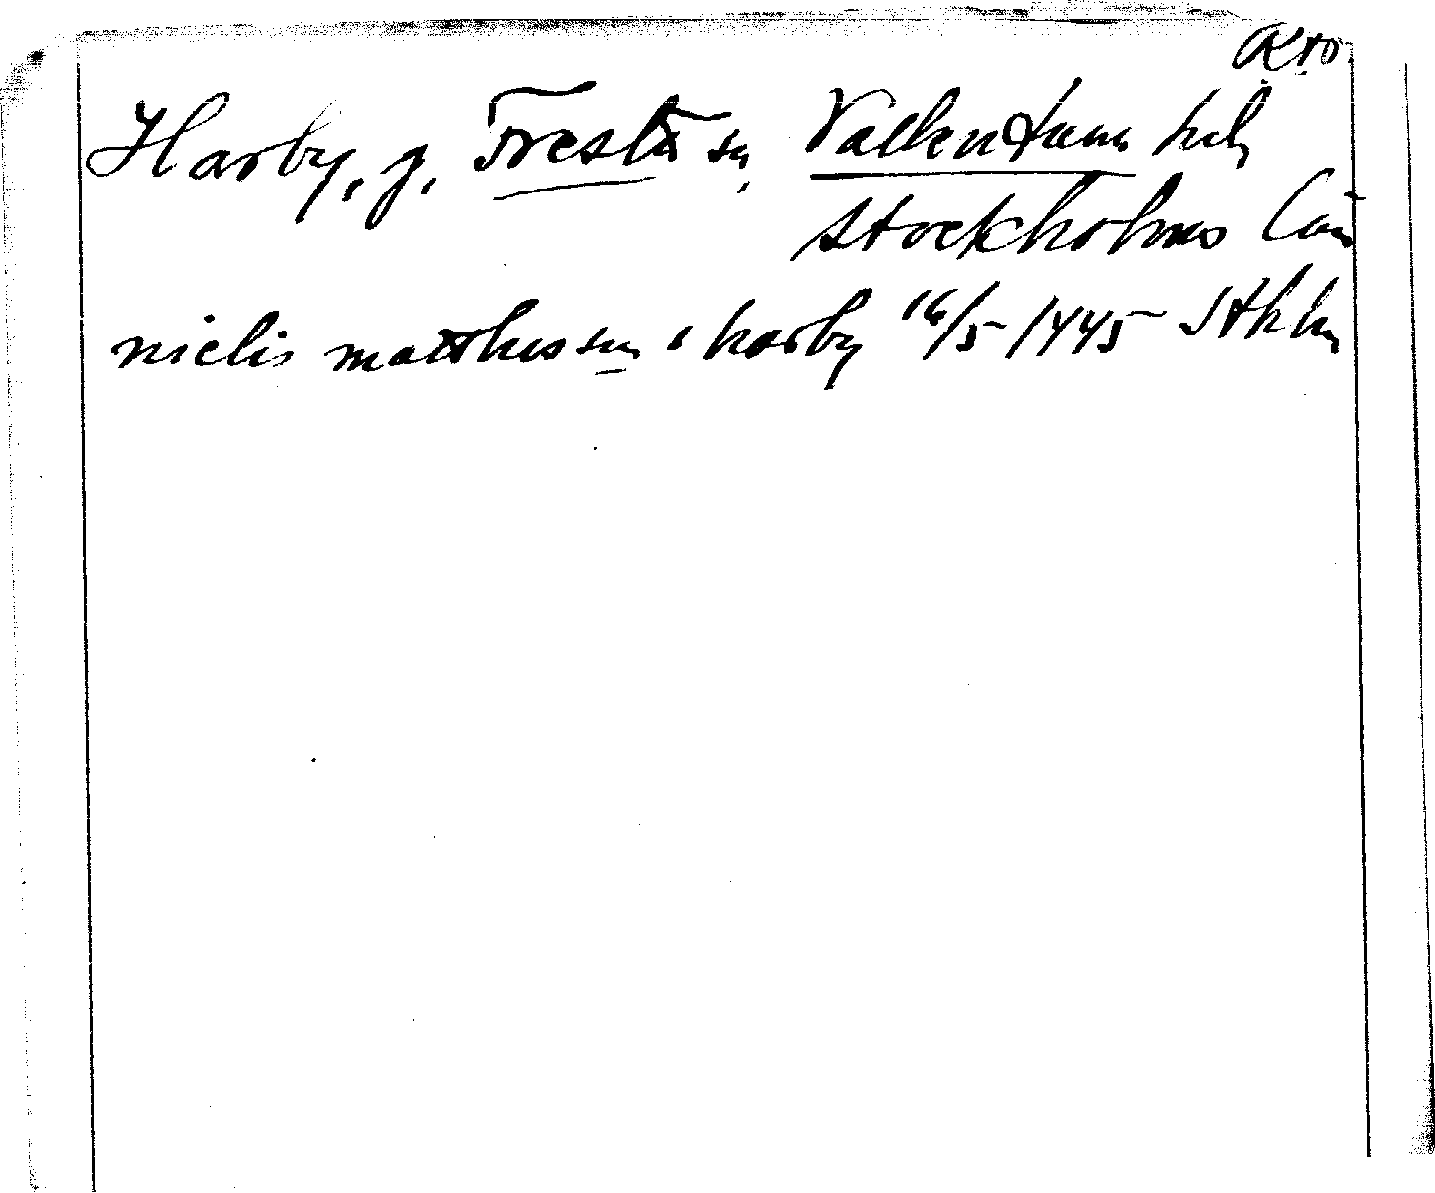 Harby, g. Fresta sn, Vallentuna hd,
Stockholms län
nielis matthessun i harby 16/5 1445 Sthlm